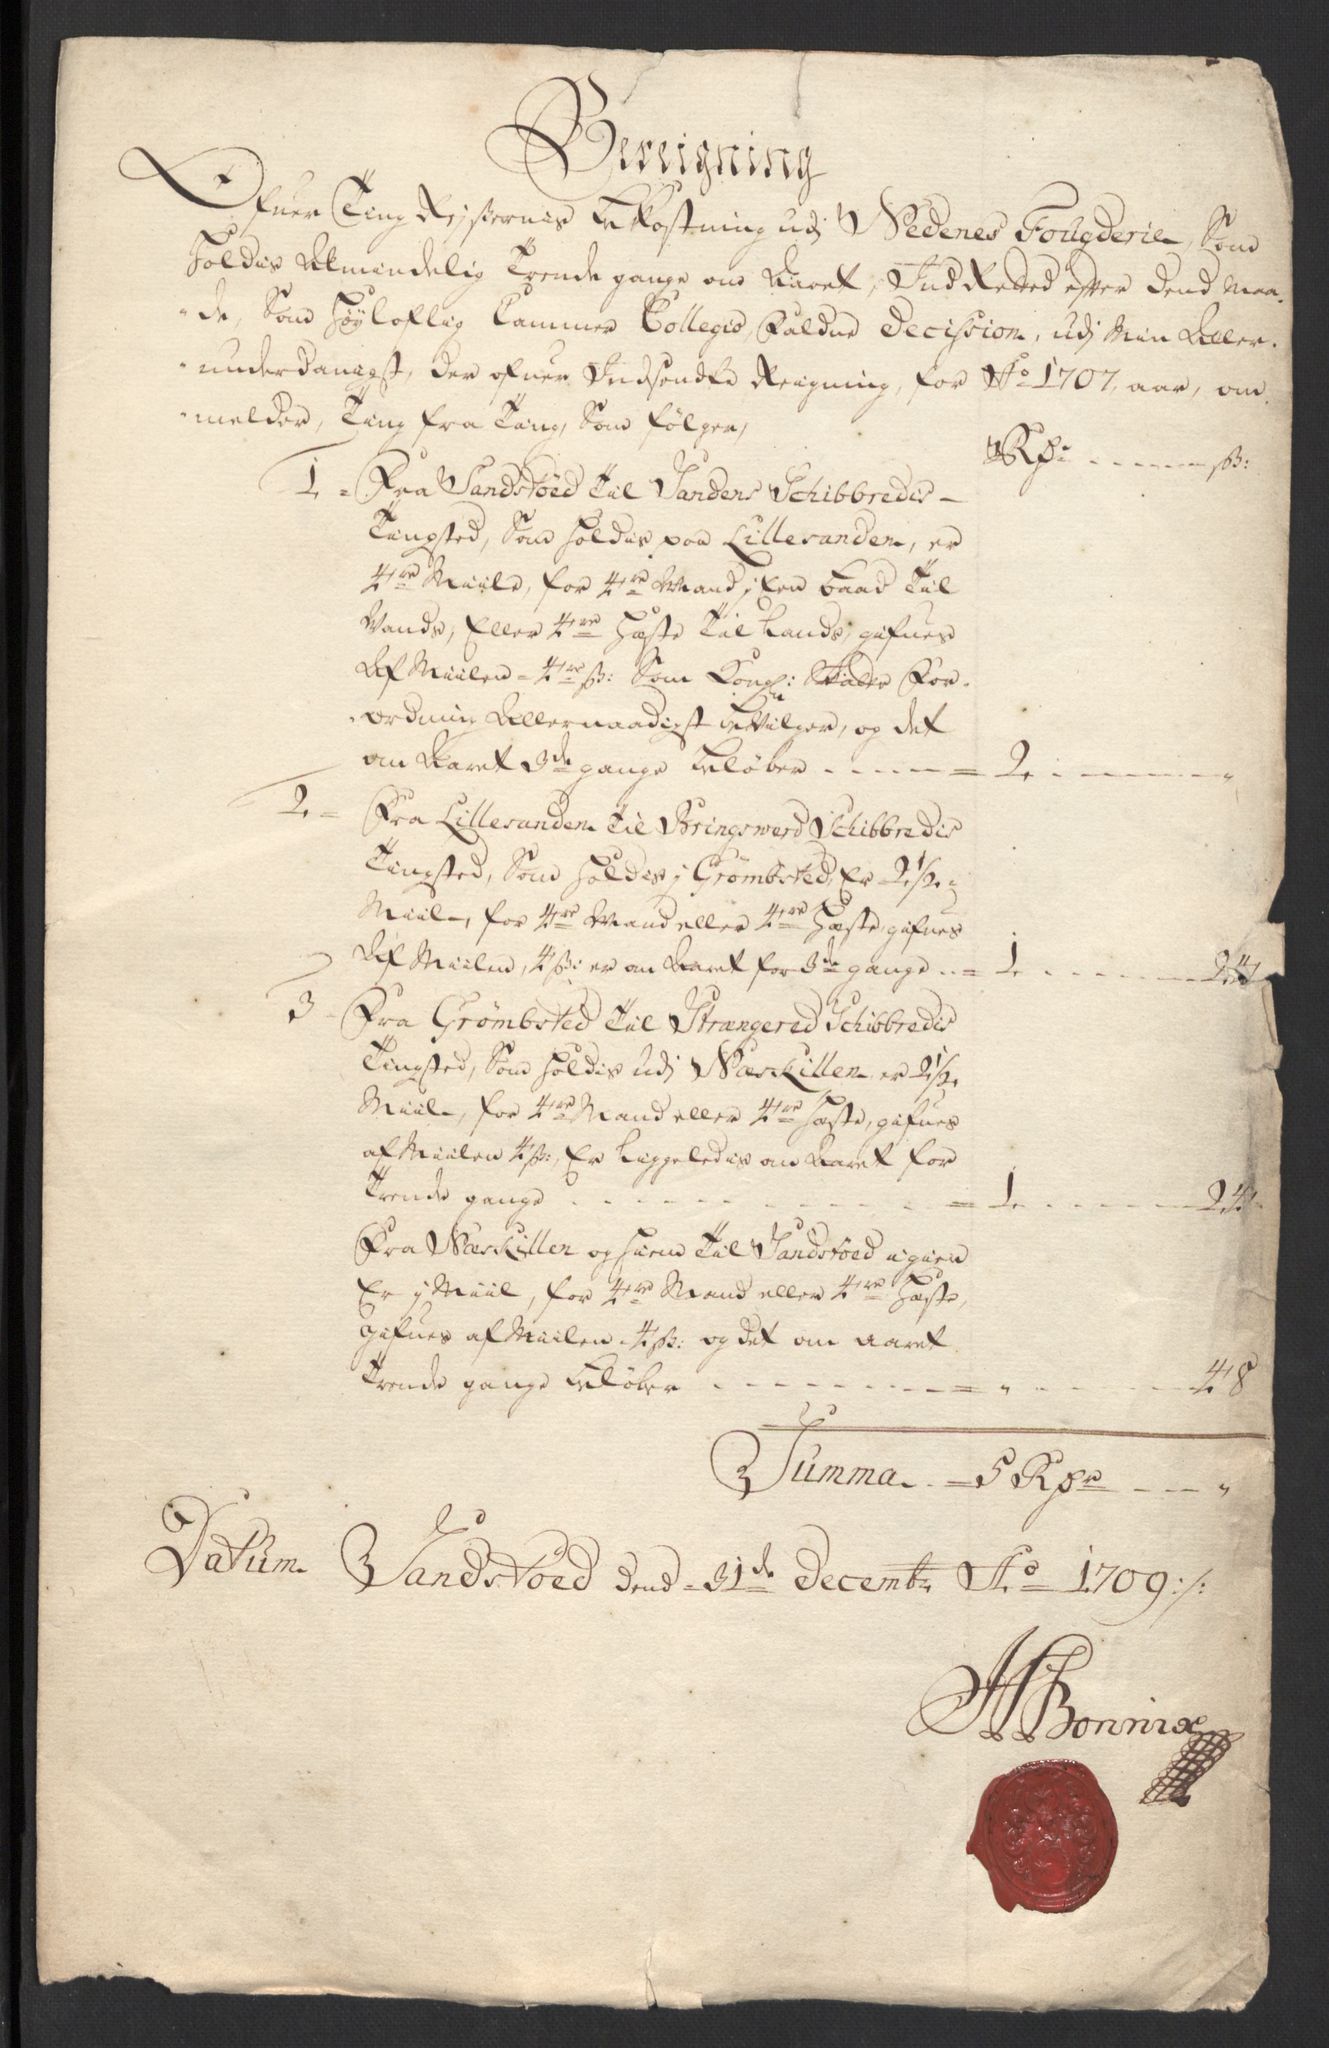 Bereigning
Ofuer Ting Rejsernis bekostning udj Nedenes Fougderie, Som
holdis Almindelig Trende gange om Aaret, Ind Retted efter dend Maa-
de, Som høyloflig Cammer Collegio, faldne Decission, udj Min Aller-
underdanigst, der ofuer Indsendte Reigning, for Ao 1707. aar, om
melder, Ting fra Ting, Som følger,
Rdr ------ sz:
1 = Fra Sandstøed Til Sandens Schibbredis-
Tingsted, Som holdis paa Lillesanden, er
4re Miile, for 4re Mand j Een baad Till
Vands, Eller 4re Hæste Til Lands, gifues
Af Miilen = 4re sz: Som Kongl: For-
ordning Allernaadigst beVilger, og det
om Aaret 3de gange beløber ---- = 2. ----- "
2 = Fra Lillesanden Til Bringswerd Schibbredis
Tingsted, Som holdis j Grømbsted, Er 2 1/2
Miil, for 4re Mand eller 4re Hæste, gifues
Af Miilen, 4 sz: er om Aaret for 3de gange .. = 1. ----- 24
3 - Fra Grømbsted Til Strangered Schibbredis
Tingsted, Som holdis udj Næskillen er 2 1/2
Miil, for 4re Mand eller 4re Hæste, gifues
af Miilen 4 sz:, Er ligeledis om Aaret for
Trende gange -------- = 1. ----- 24
Fra Næskillen og hiem Till Sandstøed igien
Er j Miil, for 4re Mand eller 4re Hæste,
Gifues af Miilen 4 sz: og det om aaret
Trende gange beløber ------ = " ----- 48
Summa .. = 5 Rdr --- "
Datum Sandstøed dend = 31de Decembr Ao 1709:/:
Bonnix